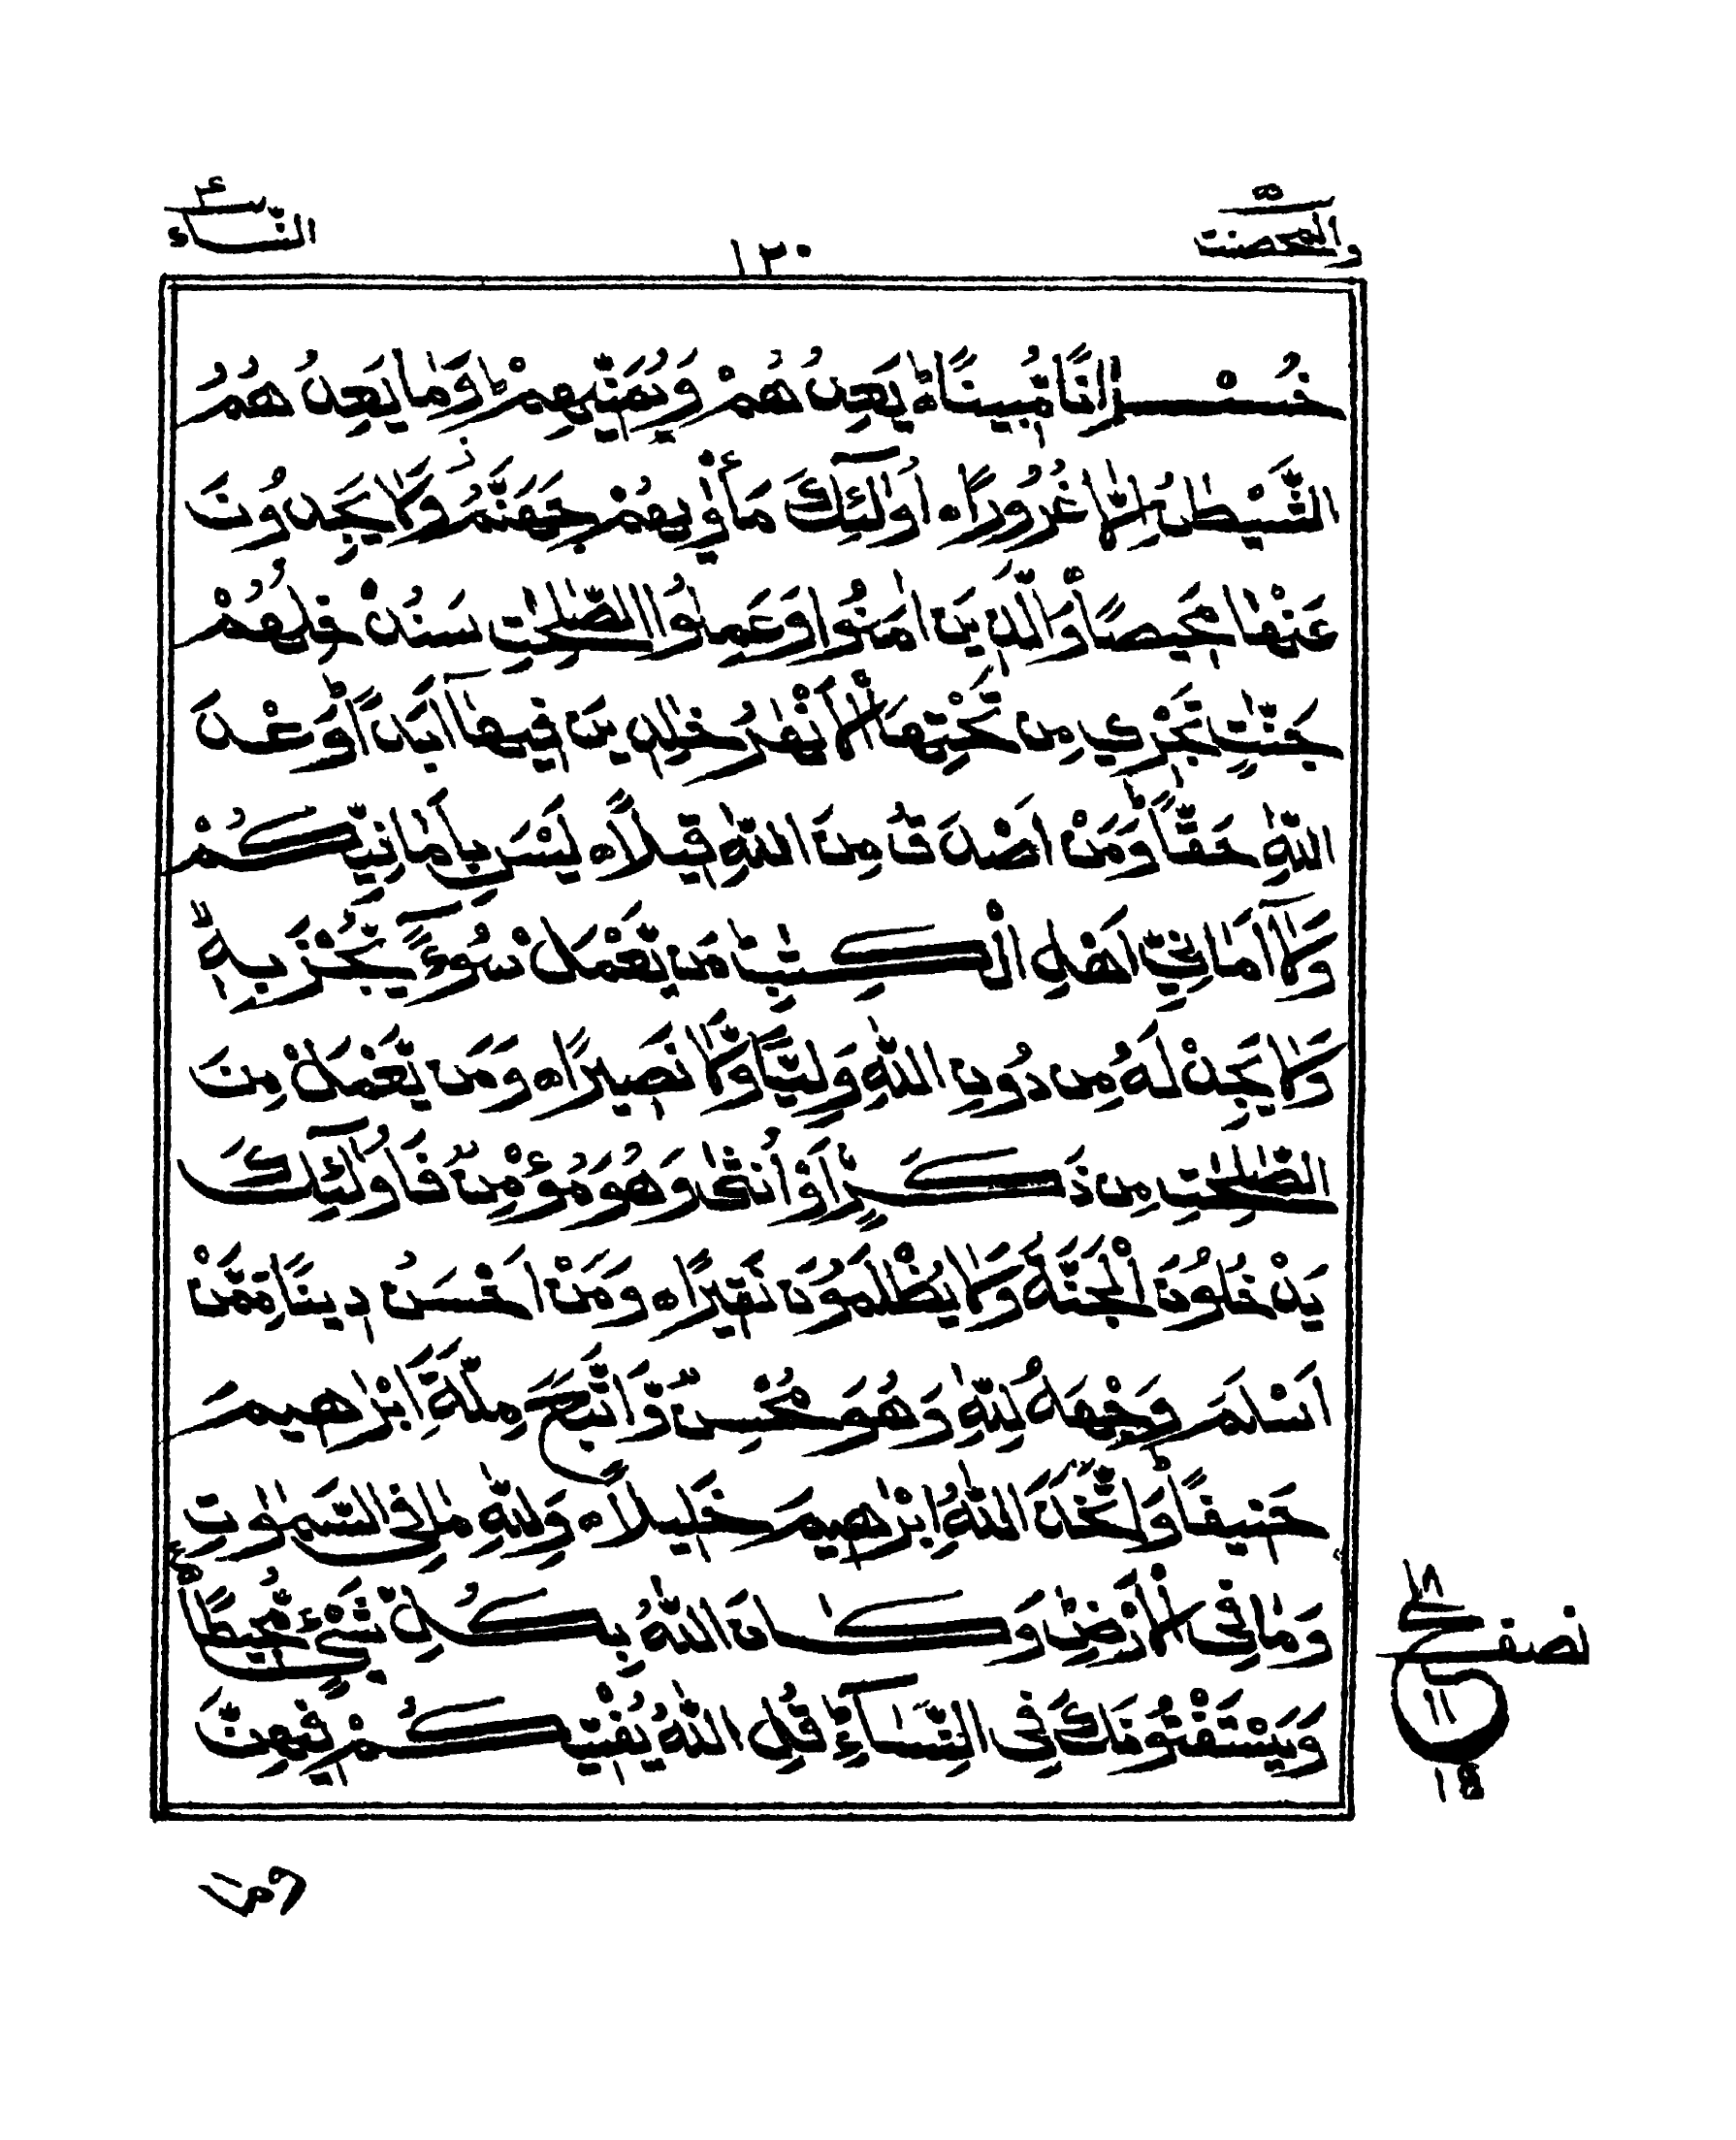 والمحصنت ٥
١٣٠
النساء ٤
خُسْرَانًا مُّبِينًا ۝ؕ يَعِدُهُمْ وَيُمَنِّيهِمْ ؕ وَمَا يَعِدُهُمُ
الشَّيْطٰنُ اِلَّا غُرُورًا ۝ اُولٰٓئِكَ مَأْوٰىهُمْ جَهَنَّمُ ز وَلَا يَجِدُونَ
عَنْهَا مَحِيصًا ۝ وَالَّذِينَ اٰمَنُوا وَعَمِلُوا الصّٰلِحٰتِ سَنُدْخِلُهُمْ
جَنّٰتٍ تَجْرِي مِن تَحْتِهَا الْاَنْهٰرُ خٰلِدِينَ فِيهَآ اَبَدًا ؕ وَعْدَ
اللّٰهِ حَقًّا ؕ وَمَنْ اَصْدَقُ مِنَ اللّٰهِ قِيلًا ۝ لَيْسَ بِاَمَانِيِّكُمْ
وَلَآ اَمَانِيِّ اَهْلِ الْكِتٰبِ ؕ مَن يَّعْمَلْ سُوٓءًا يُّجْزَ بِهٖ ۙ
وَلَا يَجِدْ لَهُ مِن دُونِ اللّٰهِ وَلِيًّا وَّلَا نَصِيرًا ۝ وَمَن يَّعْمَلْ مِنَ
الصّٰلِحٰتِ مِن ذَكَرٍ اَوْ اُنثٰى وَهُوَ مُؤْمِنٌ فَاُولٰٓئِكَ
يَدْخُلُونَ الْجَنَّةَ وَلَا يُظْلَمُونَ نَقِيرًا ۝ وَمَنْ اَحْسَنُ دِينًا مِّمَّنْ
اَسْلَمَ وَجْهَهُ لِلّٰهِ وَهُوَ مُحْسِنٌ وَّاتَّبَعَ مِلَّةَ اِبْرٰهِيمَ
حَنِيفًا ؕ وَاتَّخَذَ اللّٰهُ اِبْرٰهِيمَ خَلِيلًا ۝ وَلِلّٰهِ مَا فِى السَّمٰوٰتِ
وَمَا فِى الْاَرْضِ ؕ وَكَانَ اللّٰهُ بِكُلِّ شَىْءٍ مُّحِيطًا ۝ع
وَيَسْتَفْتُونَكَ فِى النِّسَآءِ ؕ قُلِ اللّٰهُ يُفْتِيكُمْ فِيهِنَّ
نصف
١٨
ع
١١
١٥